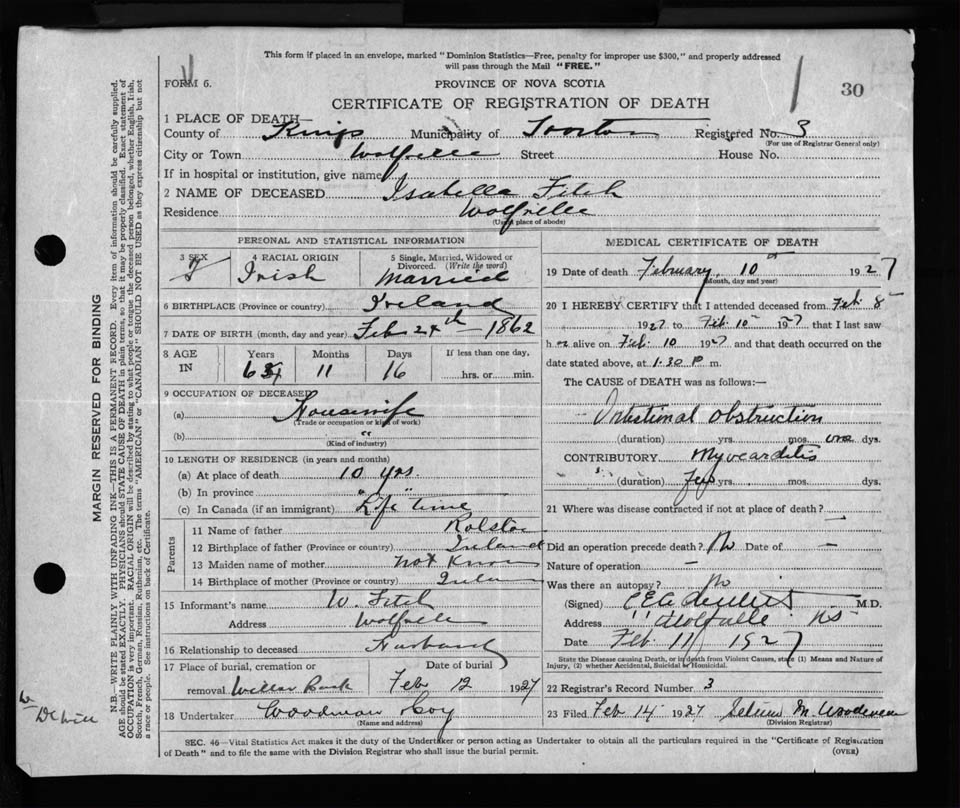 This form if placed in an envelope, marked "Dominion Statistics—Free, penalty for improper use $300," and properly addressed
will pass through the Mail "FREE."
FORM 6.
PROVINCE OF NOVA SCOTIA
30
CERTIFICATE OF REGISTRATION OF DEATH
1 PLACE OF DEATH—
County of Kings Municipality of Registered No. 3
(For use of Registrar General only)
City or Town Wolfville Street House No.
If in hospital or institution, give name
2 NAME OF DECEASED Isabella Fitch
Residence Wolfville
(Usual place of abode)
PERSONAL AND STATISTICAL INFORMATION
3 SEX
4 RACIAL ORIGIN
5 Single, Married, Widowed or
Divorced. (Write the word)
F Irish Married
6 BIRTHPLACE (Province or country) Ireland
7 DATE OF BIRTH (month, day and year) Feb 24th 1862
8 AGE Years Months Days If less than one day,
IN 11 16 hrs. or min.
9 OCCUPATION OF DECEASED
(a) Housewife
(Trade or occupation or kind of work)
(b) "
(Kind of industry)
10 LENGTH OF RESIDENCE (in years and months)
(a) At place of death 10 yrs
(b) In province " "
(c) In Canada (if an immigrant) Life time
Parents
11 Name of father Rolston
12 Birthplace of father (Province or country) Ireland
13 Maiden name of mother not Known
14 Birthplace of mother (Province or country) Ireland
15 Informant's name W. Fitch
Address Wolfville
16 Relationship to deceased Husband
17 Place of burial, cremation or Date of burial
removal Willow Bank Feb 12 1927
18 Undertaker Woodman
(Name and address)
MEDICAL CERTIFICATE OF DEATH
19 Date of death February 10th 1927
(Month, day and year)
20 I HEREBY CERTIFY that I attended deceased from Feb. 8
1927 to Feb 10 1927 that I last saw
her alive on Feb. 10 1927 and that death occurred on the
date stated above, at 1.30 P m.
The CAUSE of DEATH was as follows:—
Intestinal obstruction
(duration) yrs. mos. one dys.
CONTRIBUTORY Myocarditis
(duration) few yrs. mos. dys.
21 Where was disease contracted if not at place of death? —
Did an operation precede death? No Date of —
Nature of operation —
Was there an autopsy? No
(Signed) M.D.
Address Wolfville NS
Date Feb. 11 1927
State the Disease causing Death, or in death from Violent Causes, state (1) Means and Nature of
Injury, (2) whether Accidental, Suicidal or Homicidal.
22 Registrar's Record Number 3
23 Filed Feb 14 1927 M.
(Division Registrar)
SEC. 46—Vital Statistics Act makes it the duty of the Undertaker or person acting as Undertaker to obtain all the particulars required in the "Certificate of Registration
of Death" and to file the same with the Division Registrar who shall issue the burial permit. (OVER)
MARGIN RESERVED FOR BINDING
N.B.—WRITE PLAINLY WITH UNFADING INK—THIS IS A PERMANENT RECORD. Every item of information should be carefully supplied.
AGE should be stated EXACTLY. PHYSICIANS should STATE CAUSE OF DEATH in plain terms, so that it may be properly classified. Exact statement of
OCCUPATION is very important. RACIAL ORIGIN will be described by stating to what people or tongue the deceased person belonged, whether English, Irish,
Scotch, French, German, Russian, Ruthenian, etc. The terms "AMERICAN" or "CANADIAN" SHOULD NOT BE USED as they express citizenship but not
a race or people. See instructions on back of Certificate.